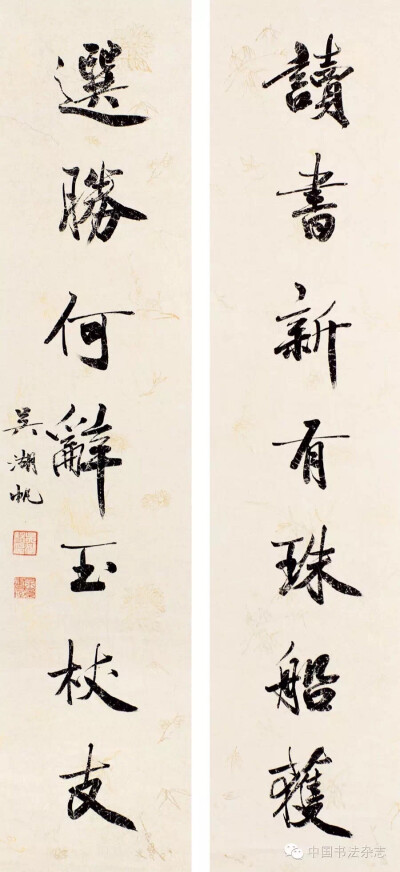 讀書新有珠船獲
選勝何辭玉杖支
吳湖帆
中国书法杂志